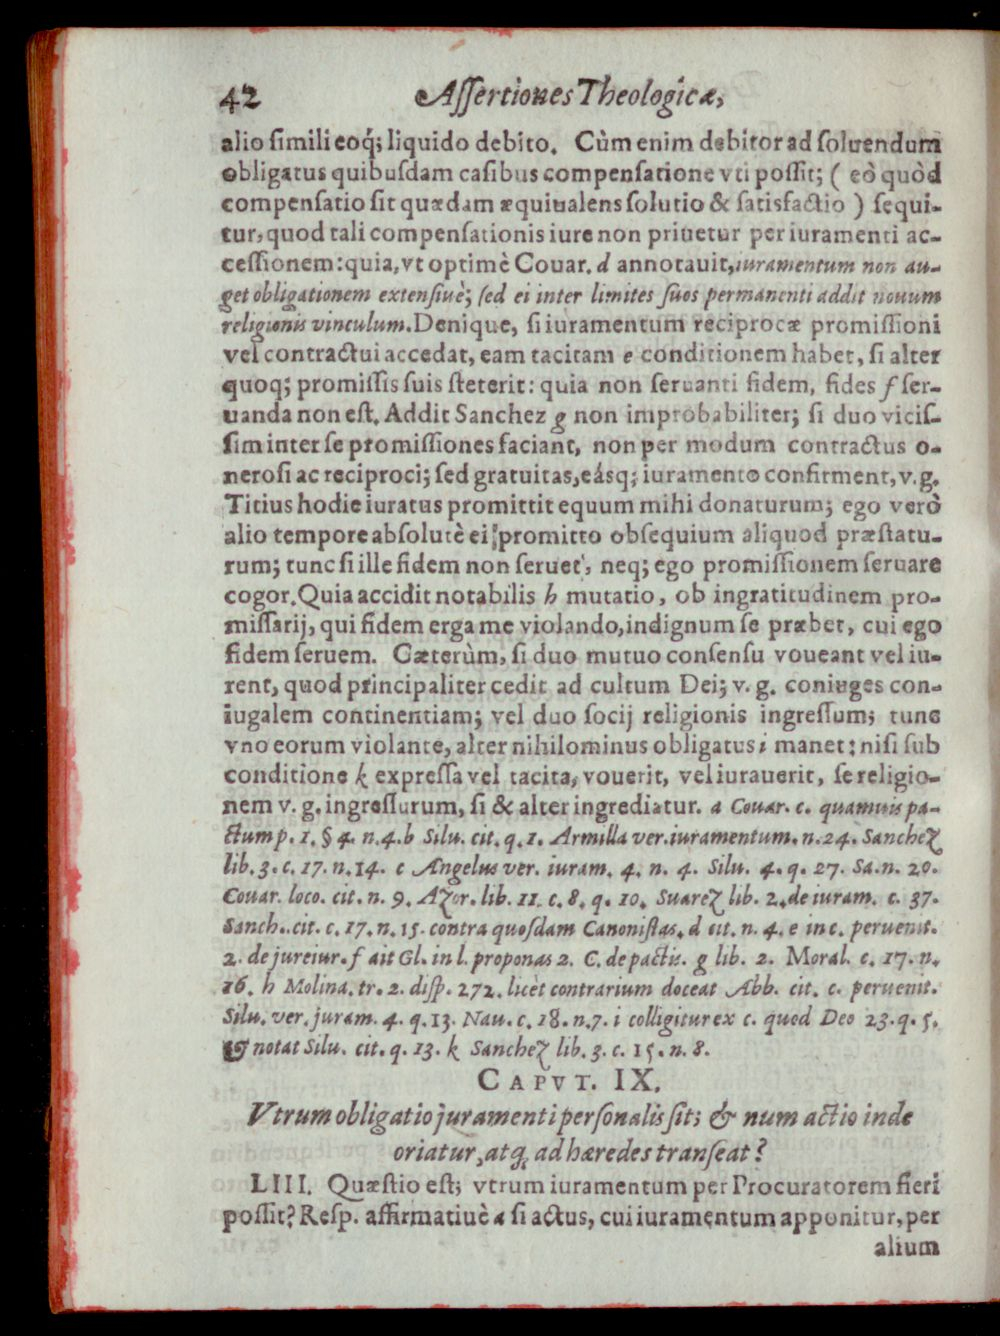 42 Aſſertiones Theologicæ,
alio ſimili eoq́; liquido debito. Cùm enim debitor ad ſoluendum
obligatus quibuſdam caſibus compenſatione vti poſſit; ( eò quòd
compenſatio ſit quædam æquiualens ſolutio & ſatisfactio ) ſequi-
tur, quod tali compenſationis iure non priuetur per iuramenti ac-
ceſſionem: quia, vt optimè Couar. d annotauit, iuramentum non au-
get obligationem extenſiuè; ſed ei inter limites ſuos permanenti addit nouum
religionis vinculum. Denique, ſi iuramentum reciprocæ promiſſioni
vel contractui accedat, eam tacitam e conditionem habet, ſi alter
quoq; promiſſis ſuis ſteterit: quia non ſeruanti fidem, fides f ſer-
uanda non eſt. Addit Sanchez g non improbabiliter; ſi duo viciſ-
ſim inter ſe promiſſiones faciant, non per modum contractus o-
neroſi ac reciproci; ſed gratuitas, eásq; iuramento confirment, v. g.
Titius hodie iuratus promittit equum mihi donaturum; ego verò
alio tempore abſolutè ei promitto obſequium aliquod præſtatu-
rum; tunc ſi ille fidem non ſeruet, neq; ego promiſſionem ſeruare
cogor. Quia accidit notabilis h mutatio, ob ingratitudinem pro-
miſſarij, qui fidem erga me violando, indignum ſe præbet, cui ego
fidem ſeruem. Cæterùm, ſi duo mutuo conſenſu voueant vel iu-
rent, quod principaliter cedit ad cultum Dei; v. g. coniuges con-
iugalem continentiam; vel duo ſocij religionis ingreſſum; tunc
vno eorum violante, alter nihilominus obligatus i manet: niſi ſub
conditione k expreſſa vel tacita, vouerit, vel iurauerit, ſe religio-
nem v. g. ingreſſurum, ſi & alter ingrediatur. a Couar. c. quamuis pa-
ctum p. 1. § 4. n. 4. b Silu. cit. q. 1. Armilla ver. iuramentum. n. 24. Sanchez
lib. 3. c. 17. n. 14. c Angelus ver. iuram. 4. n. 4. Silu. 4. q. 27. Sa. n. 20.
Couar. loco. cit. n. 9. Azor. lib. 11. c. 8. q. 10. Suarez lib. 2. de iuram. c. 37.
Sanch. cit. c. 17. n. 15. contra quoſdam Canoniſtas. d cit. n. 4. e in c. peruenit.
2. de jureiur. f ait Gl. in l. proponas 2. C. de pactis. g lib. 2. Moral. c. 17. n.
16. h Molina. tr. 2. diſp. 272. licèt contrarium doceat Abb. cit. c. peruenit.
Silu. ver. juram. 4. q. 13. Nau. c. 18. n. 7. i colligitur ex c. quod Deo 23. q. 5.
& notat Silu. cit. q. 13. k Sanchez lib. 3. c. 15. n. 8.
CAPVT. IX.
Vtrum obligatio juramenti perſonalis ſit; & num actio inde
oriatur, atq; ad hæredes tranſeat?
LIII. Quæſtio eſt; vtrum iuramentum per Procuratorem fieri
poſſit? Reſp. affirmatiuè a ſi actus, cui iuramentum apponitur, per
alium